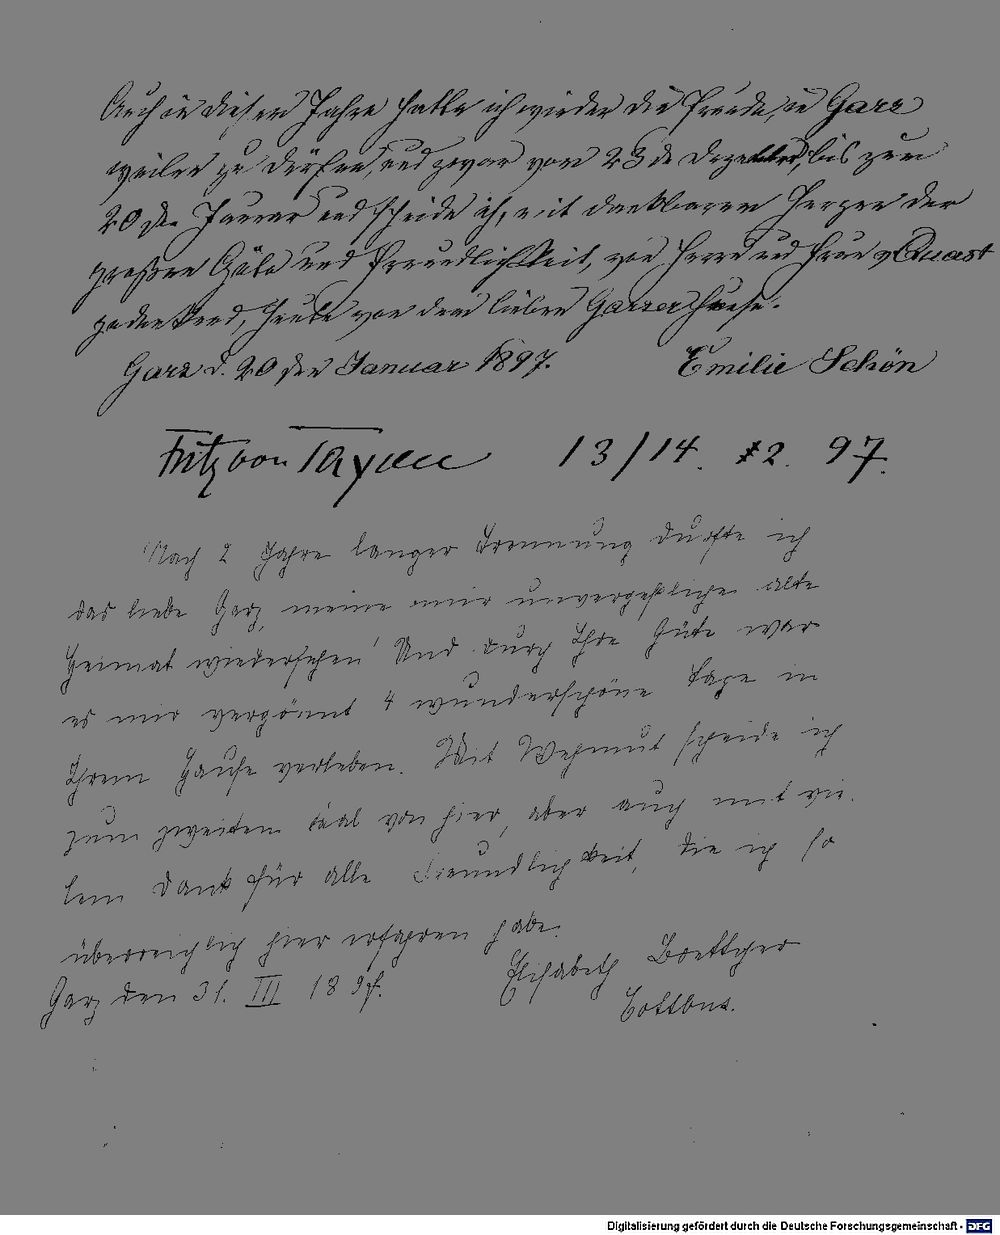 Auch in diesem Jahre hatte ich wieder die Freude, in Garz
weilen zu dürfen, und zwar vom 23 de Dezember, bis zum
20 den Januar und scheide ich, mit dankbarem Herzen der
großen Güte und Freundlichkeit, von Herrn und Frau v Quast
gedenkend, heute von dem lieben Garzer Hause.
Garz d. 20 den Januar 1897. Emilie Schön
Fritz von 13/14. 2. 97.
Nach 2 Jahre langer Trennung durfte ich
das liebe Garz, meine mir unvergeßliche alte
Heimat wiedersehen! Und durch Ihre Güte war
es mir vergönnt 4 wunderschöne Tage in
Ihrem Hause verleben. Mit Wehmut scheide ich
zum zweiten Mal von hier, aber auch mit vie-
lem Dank für alle Freundlichkeit, die ich so
überreichlich hier erfahren habe.
Garz den 31. III 1897. Elisabeth Boettcher
Cottbus.
Digitalisierung gefördert durch die Deutsche Forschungsgemeinschaft - DFG